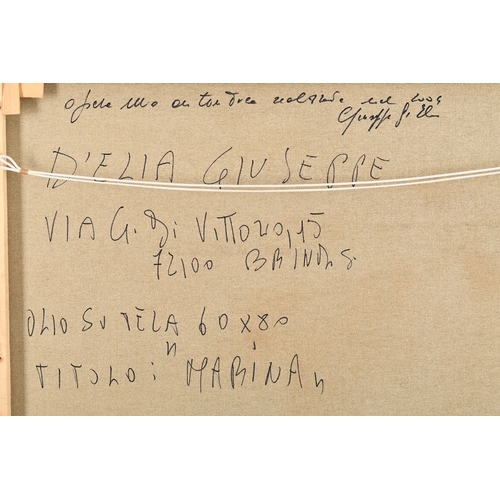 opera mia autentica realizzata nel 2004
Giuseppe D'Elia
D'ELIA GIUSEPPE
VIA G. Di VITTORIO, 15
72100 BRINDISI
OLIO SU TELA 60 x 80
TITOLO: "MARINA"